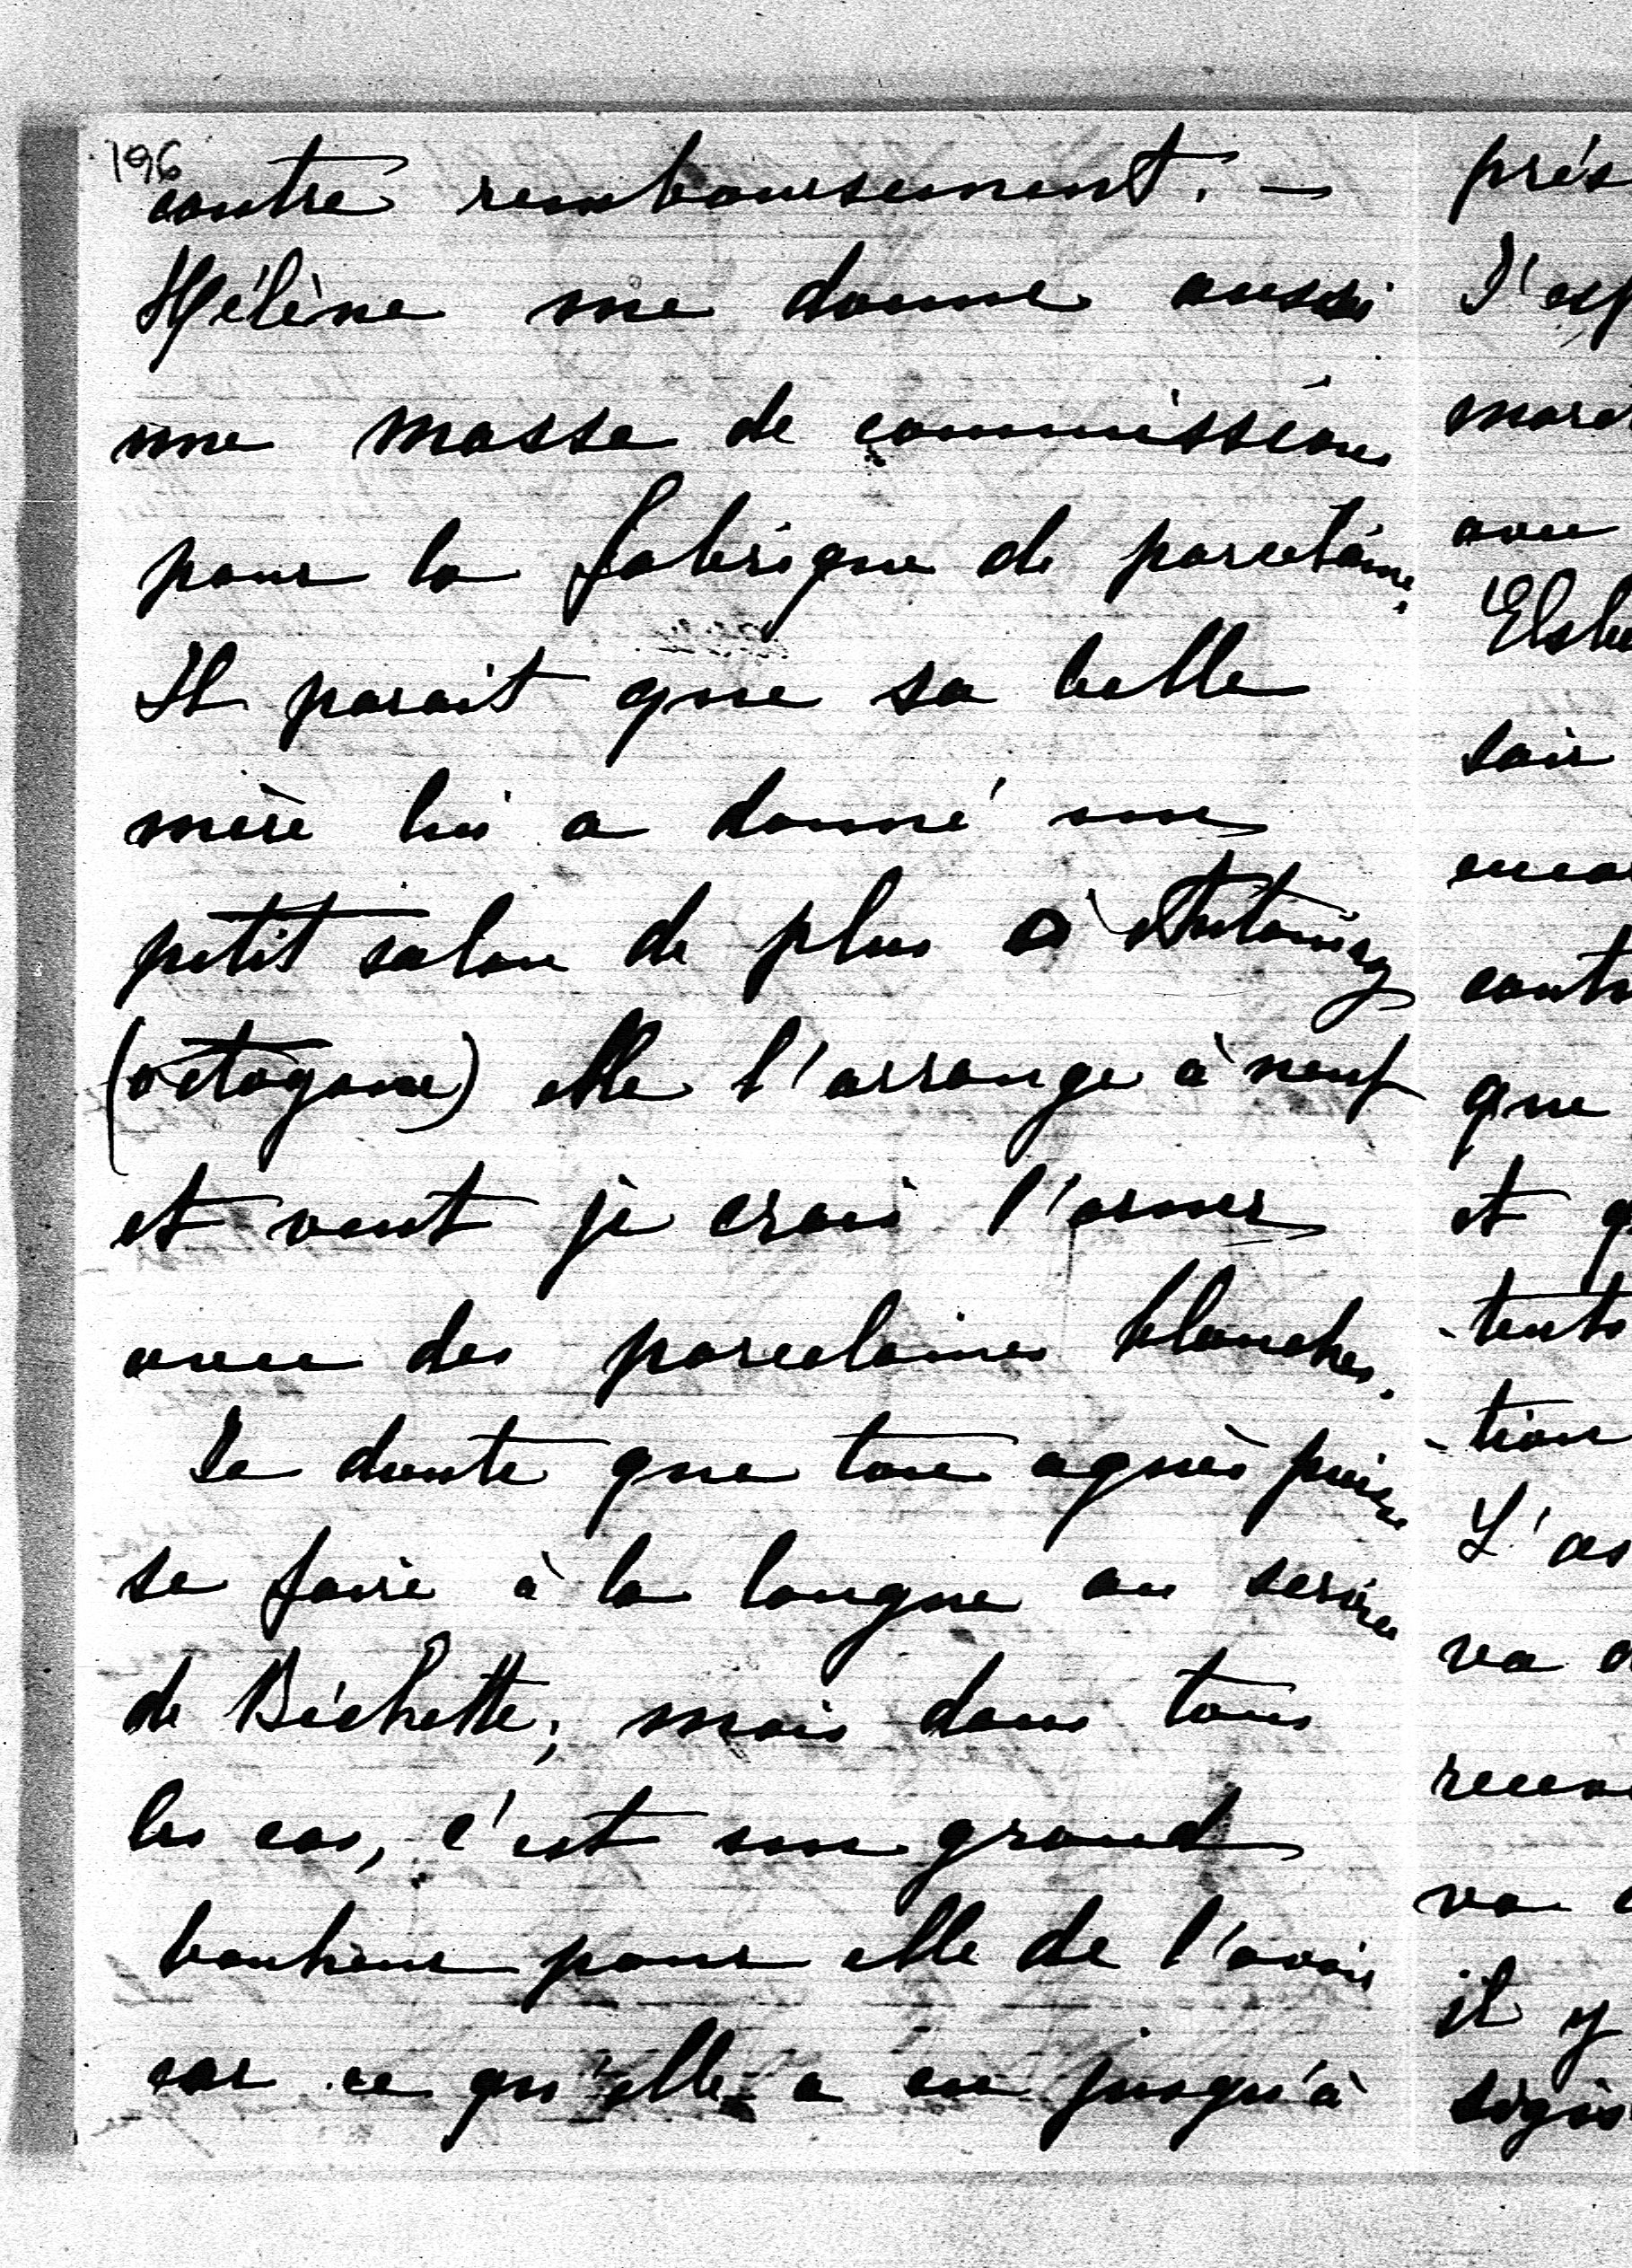 196
contre remboursement. —
Hélène me donne aussi
une masse de commissions
pour la fabrique de porcelaine.
Il parait que sa belle
mère lui a donné un
petit salon de plus à Antoniny
(octogone) elle l'arrange à neuf
et veut je crois l'orner
avec des porcelaines blanches.
Je doute que ton agnès puisse
se faire à la longue au service
de Bichette; mais dans tous
les cas, c'est un grand
bonheur pour elle de l'avoir
car ce qu'elle a eu jusqu'à
prés
J'esp
avec
soir
contr
que
et q
-tent
-tion
L'as
va
va
il y